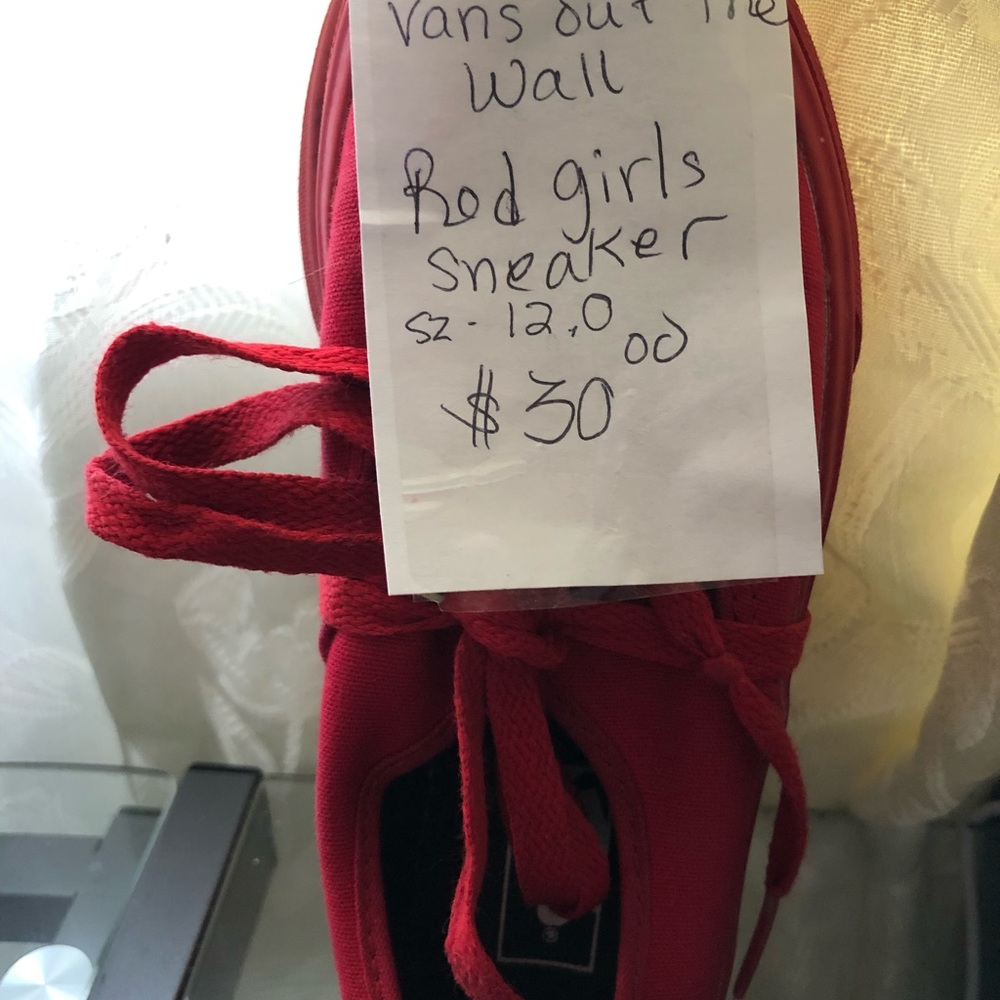 Vans out The
Wall
Red girls
sneaker
sz - 12.0
$30 00